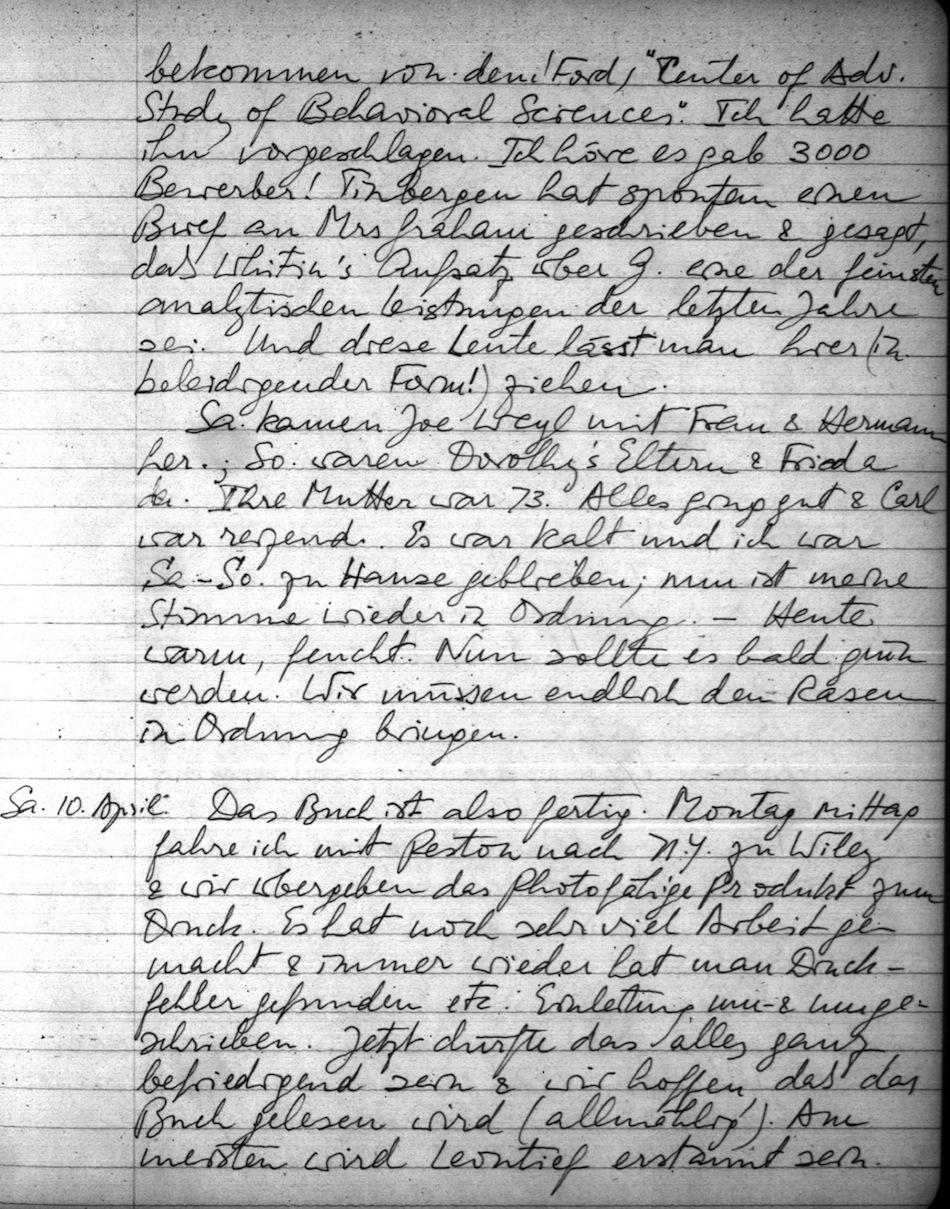 bekommen von dem Ford, "Center of Adv.
Study of Behavioral Sciences". Ich hatte
ihn vorgeschlagen. Ich höre es gab 3000
Bewerber! Tinbergen hat spontan einen
Brief an Mrs Graham geschrieben & gesagt,
das Whitin's Aufsatz über G. eine der feinsten
analytischen Leistungen der letzten Jahre
sei. Und diese Leute lässt man hier (in
beleidigender Form!) ziehen.
Sa. kamen Joe Weyl mit Frau & Hermann
her.; So. waren Dorothy's Eltern & Frieda
da. Ihre Mutter war 73. Alles ging gut & Carl
war reizend. Es war kalt und ich war
Sa - So. zu Hause geblieben; nun ist meine
Stimme wieder in Ordnung. – Heute
warm, feucht. Nun sollte es bald grün
werden. Wir müssen endlich den Rasen
in Ordnung bringen.
Sa. 10. April. Das Buch ist also fertig. Montag mittag
fahre ich mit Preston nach N.Y. zu Wiley
& wir übergeben das Photofähige Produkt zum
Druck. Es hat noch sehr viel Arbeit ge-
macht & immer wieder hat man Druck-
fehler gefunden etc. Einleitung um- & umge-
schrieben. Jetzt dürfte das alles ganz
befriedigend sein & wir hoffen, das das
Buch gelesen wird (allmählig!). Am
meisten wird Leontief erstaunt sein.